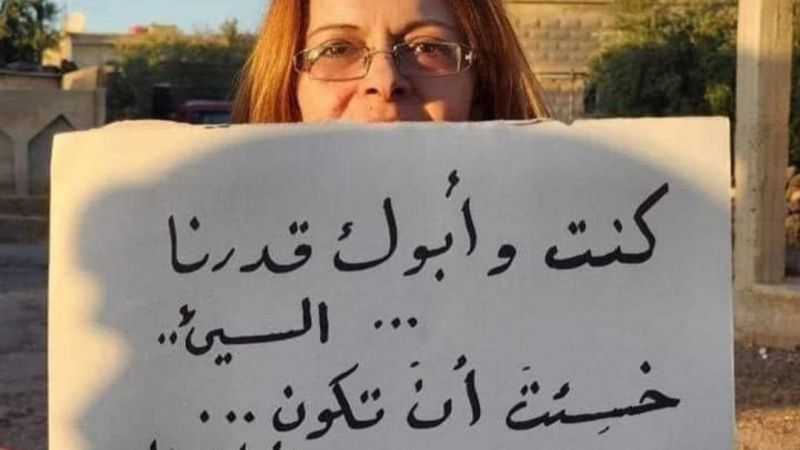 كنت وأبوك قدرنا
... السيئ..
خسِئتَ أنَ تكون...